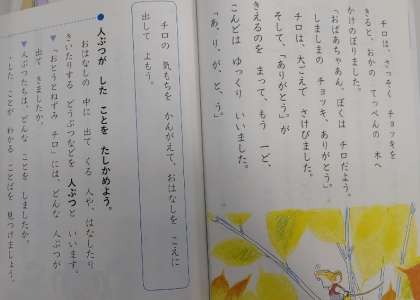 チロは、さっそく チョッキを
きると、おかの てっぺんの 木へ
かけのぼりました。
「おばあちゃあん。ぼくは チロだよう。
しましまの チョッキ、ありがとう」
チロは、大ごえで さけびました。
そして、「ありがとう」が
きえるのを まって、もう 一ど、
こんどは ゆっくり いいました。
「あ、り、が、と、う。」
チロの 気もちを かんがえて、おはなしを こえに
出して よもう。
●人ぶつが した ことを たしかめよう。
おはなしの 中に 出て くる 人や、はなしたり
きいたりする どうぶつなどを 人ぶつと いいます。
▼「おとうとねずみ チロ」には、どんな 人ぶつが
出て きましたか。
▼人ぶつたちは、どんな ことを しましたか。
した ことが わかる ことばを 見つけましょう。